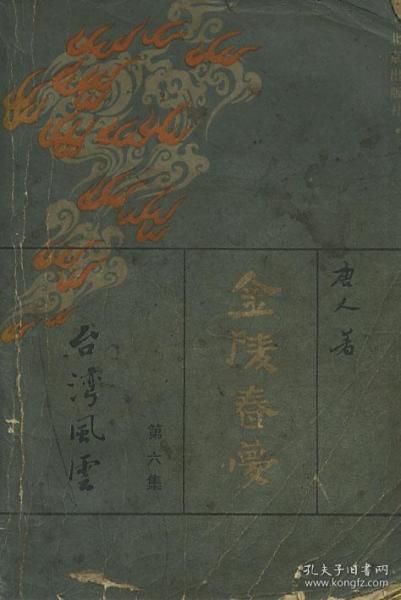 北京出版社
唐人著
金陵春夢
第六集
台灣風雲
孔夫子旧书网
www.kongfz.com